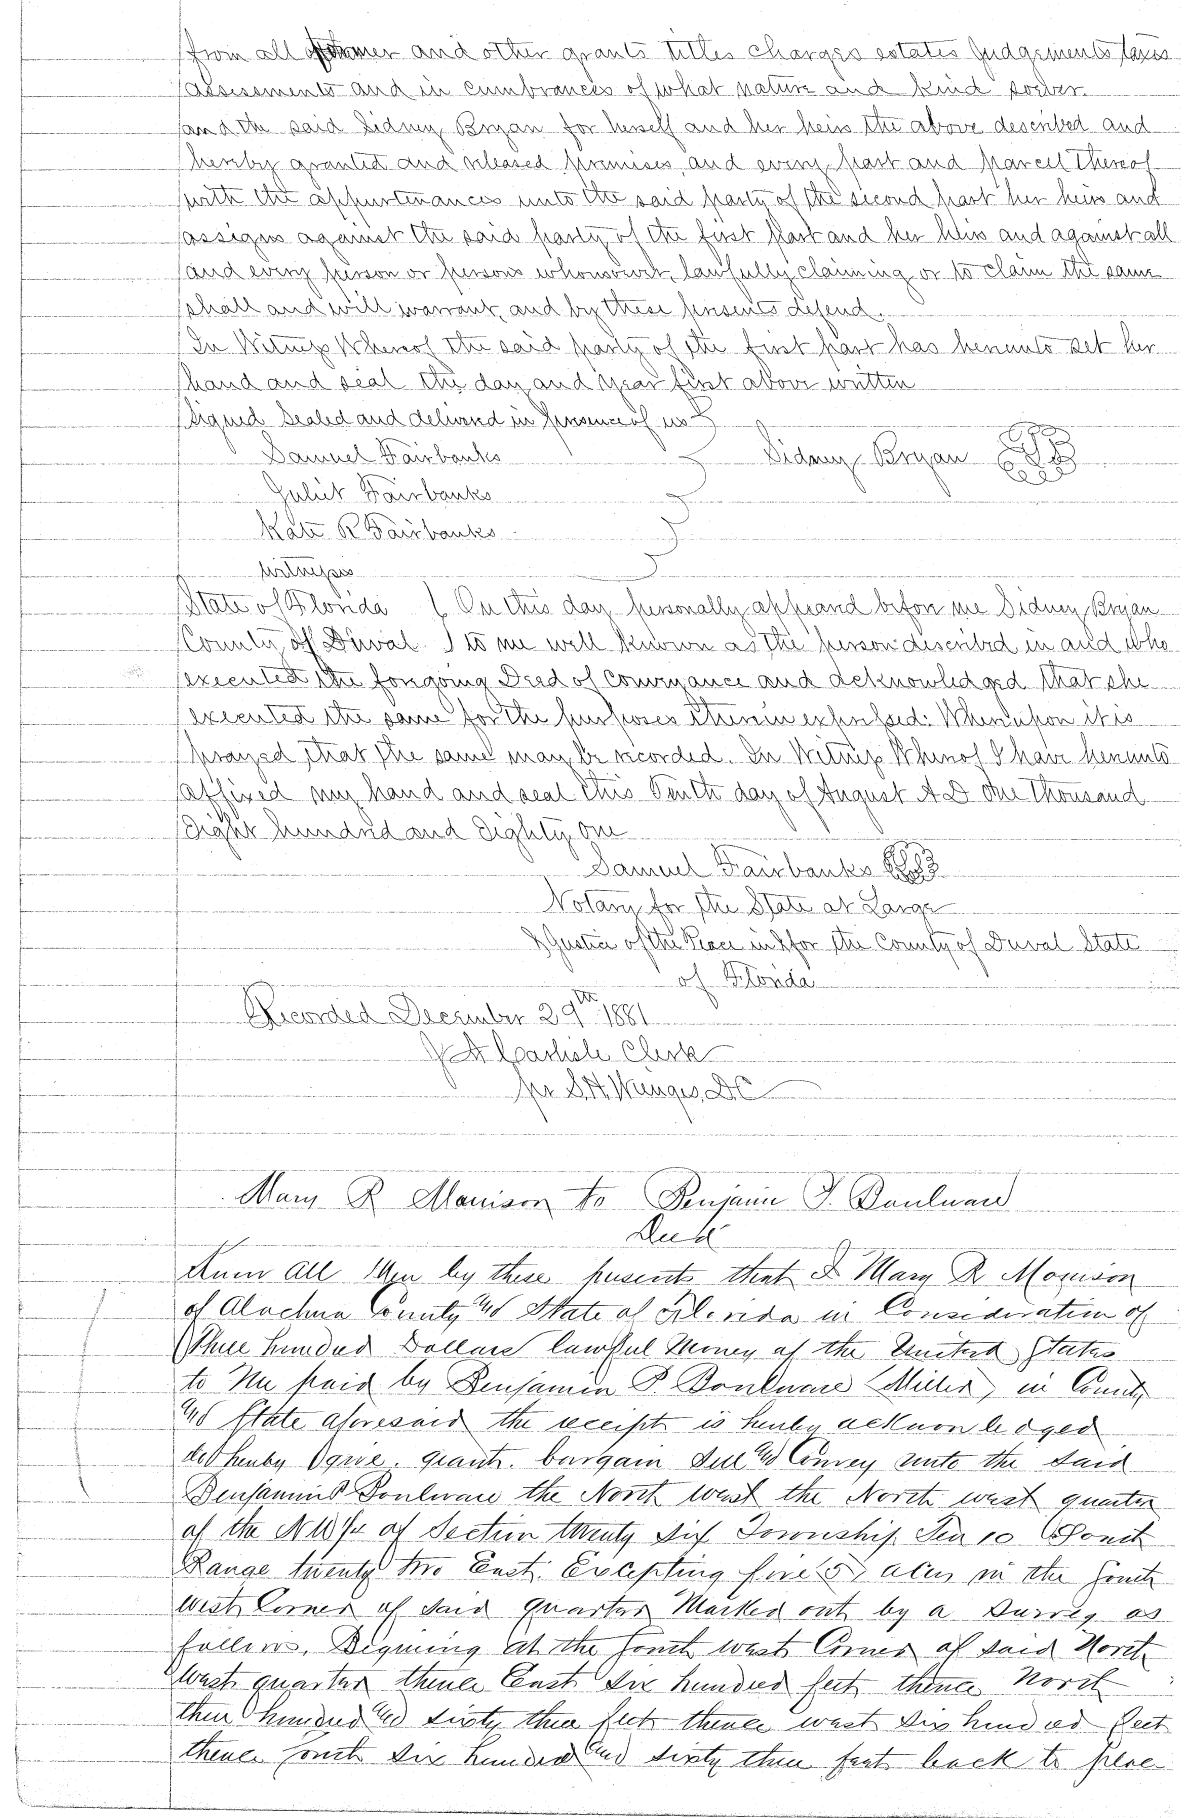 from all former and other grants titles charges estates Judgements taxes
assessments and in cumbrances of what nature and kind soever.
and the said Sidney Bryan for herself and her heirs the above described and
hereby granted and released premises, and every part and parcell thereof
with the appurtenances unto the said party of the second part her heirs and
assigns against the said party of the first part and her heirs and against all
and every person or persons whomsoever, lawfully claiming or to claim the same
shall and will warrant, and by these presents defend.
In Witness Whereof the said party of the first part has hereunto set her
hand and seal the day and year first above written
Signed Sealed and delivered in presence of us
Samuel Fairbanks Sidney Bryan
Juliet Fairbanks
Kate R Fairbanks
witnesses
State of Florida { On this day personally appeared before me Sidney Bryan
County of Duval } to me well known as the person described in and who
executed the foregoing Deed of Conveyance and acknowledged that she
executed the same for the purposes therein expressed: Whereupon it is
prayed that the same may be recorded. In Witness Whereof I have hereunto
affixed my hand and seal this Tenth day of August A D One Thousand
Eight hundred and Eighty One
Samuel Fairbanks
Notary for the State at Large
& Justice of the Peace in & for the County of Duval State
of Florida
Recorded December 29th 1881
J A Carlisle Clerk
per S. H. Wienges, D C
Mary R Morrison to Benjamin F. Boulware
Deed
Know All Men by these presents that I Mary R Morrison
of Alachua County and State of Florida in Consideration of
Three hundred Dollars lawful Money of the United States
to Me paid by Benjamin P. Boulware (Miller) in County
and State aforesaid the receipt is hereby acknowledged
do hereby give. grant. bargain Sell and Convey unto the said
Benjamin P Boulware the North west the North west quarter
of the NW/4 of Section twenty Six Township Ten 10 South
Range twenty two East. Excepting five (5) acres in the South
West Corner of said quarter Marked out by a Survey as
follows. Begining at the South West Corner of said North
West quarter thence East Six hundred feet thence North
three hundred and sixty three feet thence west six hundred feet
thence South six hundred and sixty three feet back to place